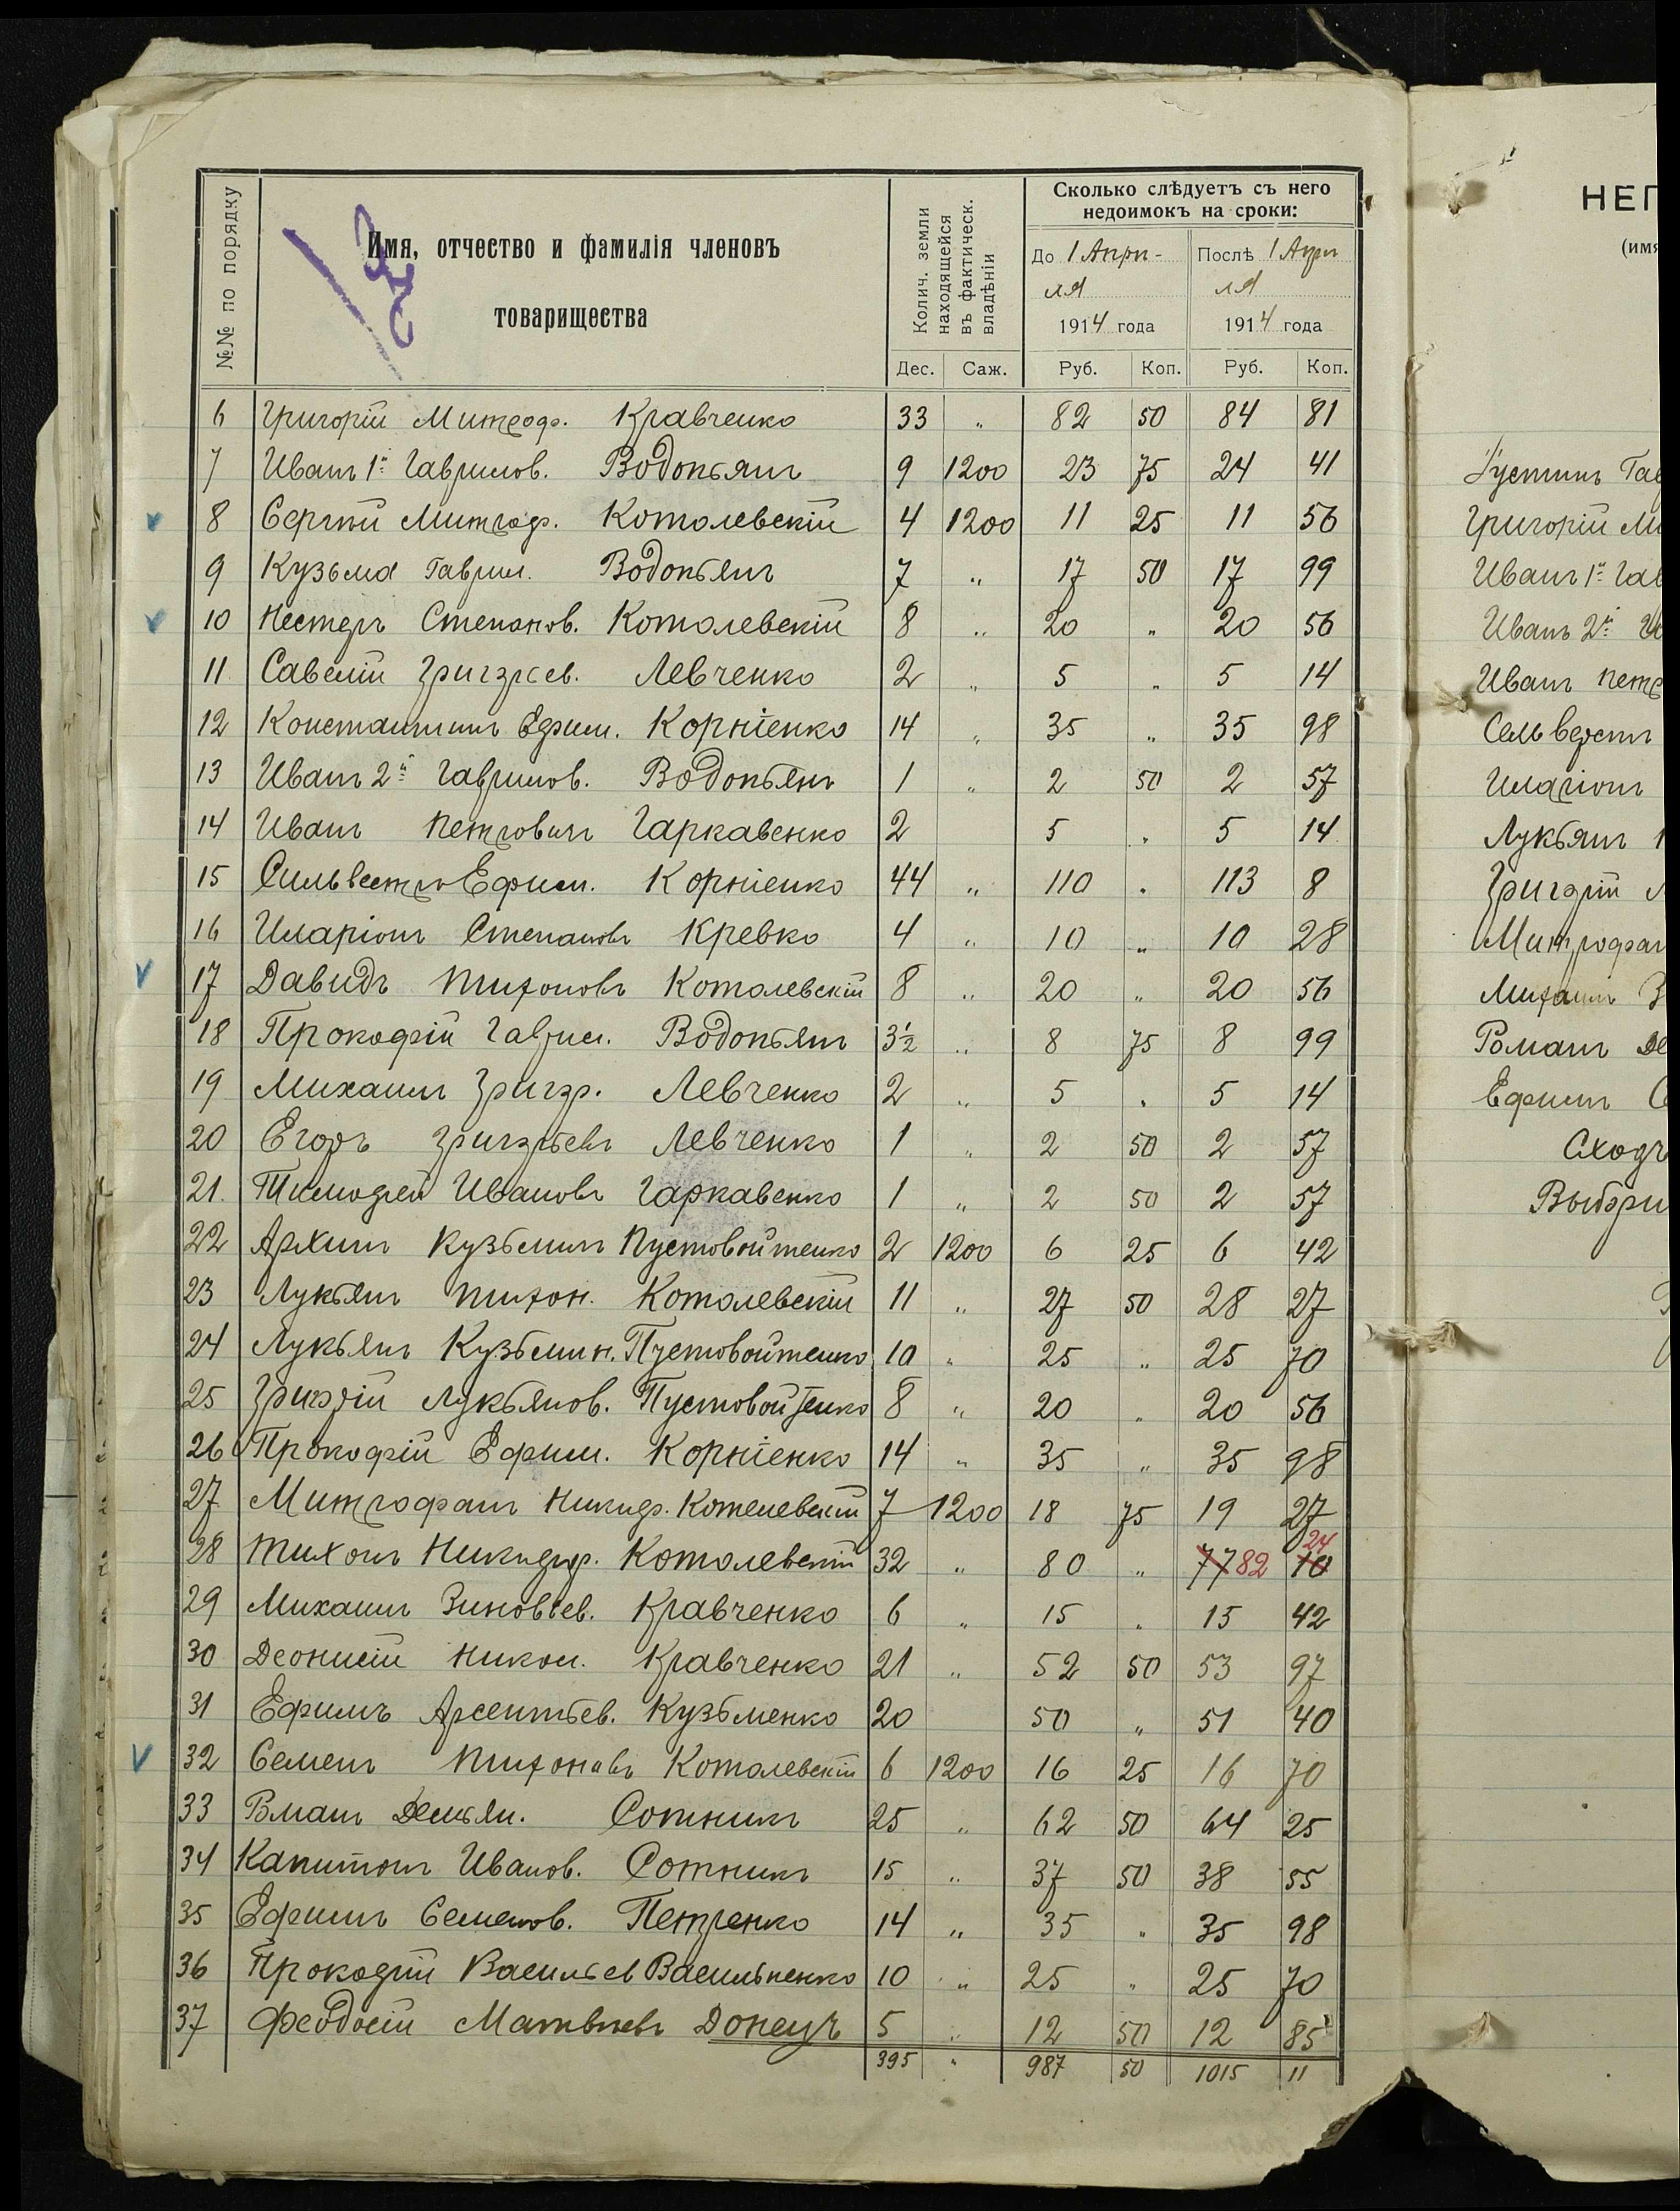 №№ по порядку
Имя, отчество и фамилія членовъ
товарищества
Колич. земли
находящейся
въ фактическ.
владѣніи
Сколько слѣдуетъ съ него
недоимокъ на сроки:
До 1 Апрѣ-
ля
1914 года
Послѣ 1 Апрѣ
ля
1914 года
Дес. Саж. Руб. Коп. Руб. Коп.
6 Григорій Митроф. Кравченко 33 " 82 50 84 81
7 Иванъ 1й Гаврилов. Водопьянъ 9 1200 23 75 24 41
8 Сергѣй Митроф. Котолевскій 4 1200 11 25 11 56
9 Кузьма Гаврил. Водопьянъ 7 " 17 50 17 99
10 Нестеръ Степанов. Котолевскій 8 " 20 " 20 56
11 Савелій Григорьев. Левченко 2 " 5 " 5 14
12 Константинъ Ефим. Корніенко 14 " 35 " 35 98
13 Иванъ 2й Гаврилов. Водопьянъ 1 " 2 50 2 57
14 Иванъ Петровичъ Гаркавенко 2 5 " 5 14
15 Сильвестръ Ефим. Корніенко 44 " 110 " 113 8
16 Иларіонъ Степановъ Кревко 4 " 10 " 10 28
17 Давидъ Тихоновъ Котолевскій 8 " 20 " 20 56
18 Прокофій Гаврил. Водопьянъ 3½ " 8 75 8 99
19 Михаилъ Григор. Левченко 2 " 5 " 5 14
20 Егоръ Григорьевъ Левченко 1 " 2 50 2 57
21 Тимофей Ивановъ Гаркавенко 1 " 2 50 2 57
22 Архипъ Кузьминъ Пустовойтенко 2 1200 6 25 6 42
23 Лукьянъ Тихон. Котолевскій 11 " 27 50 28 27
24 Лукьянъ Кузьмин. Пустовойтенко 10 " 25 " 25 70
25 Григорій Лукьянов. Пустовойтенко 8 " 20 " 20 56
26 Прокофій Ефим. Корніенко 14 " 35 " 35 98
27 Митрофанъ Никиф. Котелевскій 7 1200 18 75 19 27
28 Тихонъ Никифор. Котолевскій 32 " 80 " 77 82 10 24
29 Михаилъ Зиновьев. Кравченко 6 " 15 " 15 42
30 Деонисій Никол. Кравченко 21 " 52 50 53 97
31 Ефимъ Арсентьев. Кузьменко 20 50 " 51 40
32 Семенъ Тихоновъ Котолевскій 6 1200 16 25 16 70
33 Романъ Демьян. Сотникъ 25 " 62 50 64 25
34 Капитонъ Иванов. Сотникъ 15 " 37 50 38 55
35 Ефимъ Семенов. Петренко 14 " 35 " 35 98
36 Прокофій Васильев Васильченко 10 " 25 " 25 70
37 Феодосій Матвѣевъ Донецъ 5 " 12 50 12 85
395 " 987 50 1015 11
НЕГ
(имя
Устинъ Гав
Григорій Ми
Иванъ 1й Гав
Иванъ 2й
Иванъ Петр
Сельверстъ
Иларіонъ
Лукьянъ
Григорій
Митрофан
Михаилъ З
Романъ Де
Ефимъ С
Сходъ
Выбори